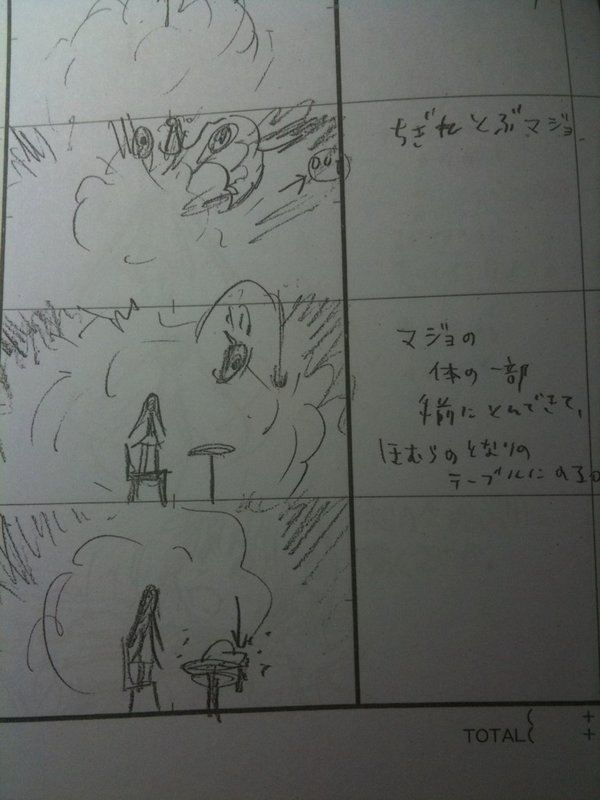 ちぎれとぶマジョ
マジョの
体の一部
手前にとんできて、
ほむらのとなりの
テーブルにのるの
TOTAL( +
( +